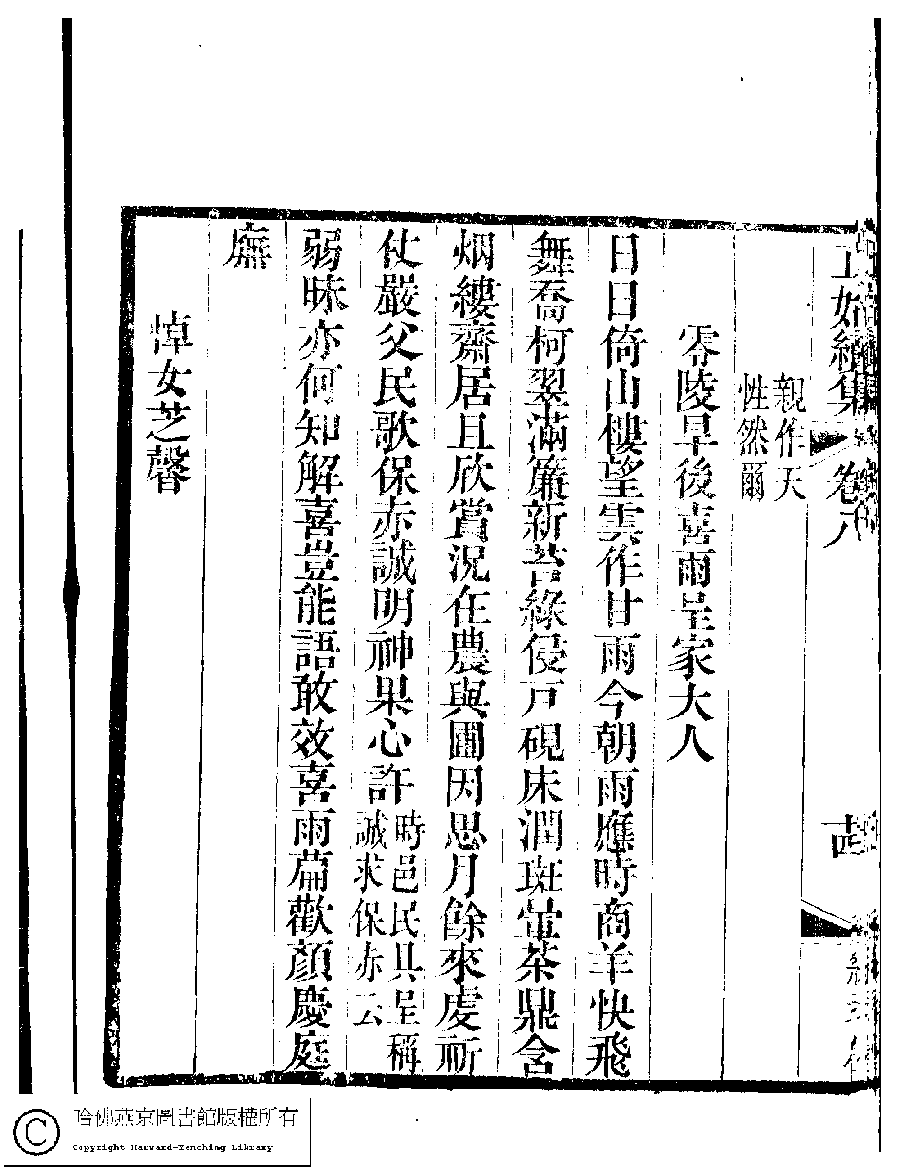 正始續集 卷八 古
親作天
性然爾
零陵旱後喜雨呈家大人
日日倚山樓望雲作甘雨今朝雨應時商羊快飛
舞喬柯翠滿簾新苔綠侵戶硯床潤斑暈茶鼎含
烟縷齋居且欣賞況在農與圃因思月餘來虔祈
仗嚴父民歌保赤誠明神果心許時邑民具呈稱
誠求保赤云
弱昧亦何知解喜豈能語敢效喜雨篇歡顏慶庭
廡
悼女芝馨
哈佛燕京圖書館版權所有
Copyright Harvard-Yenching Library